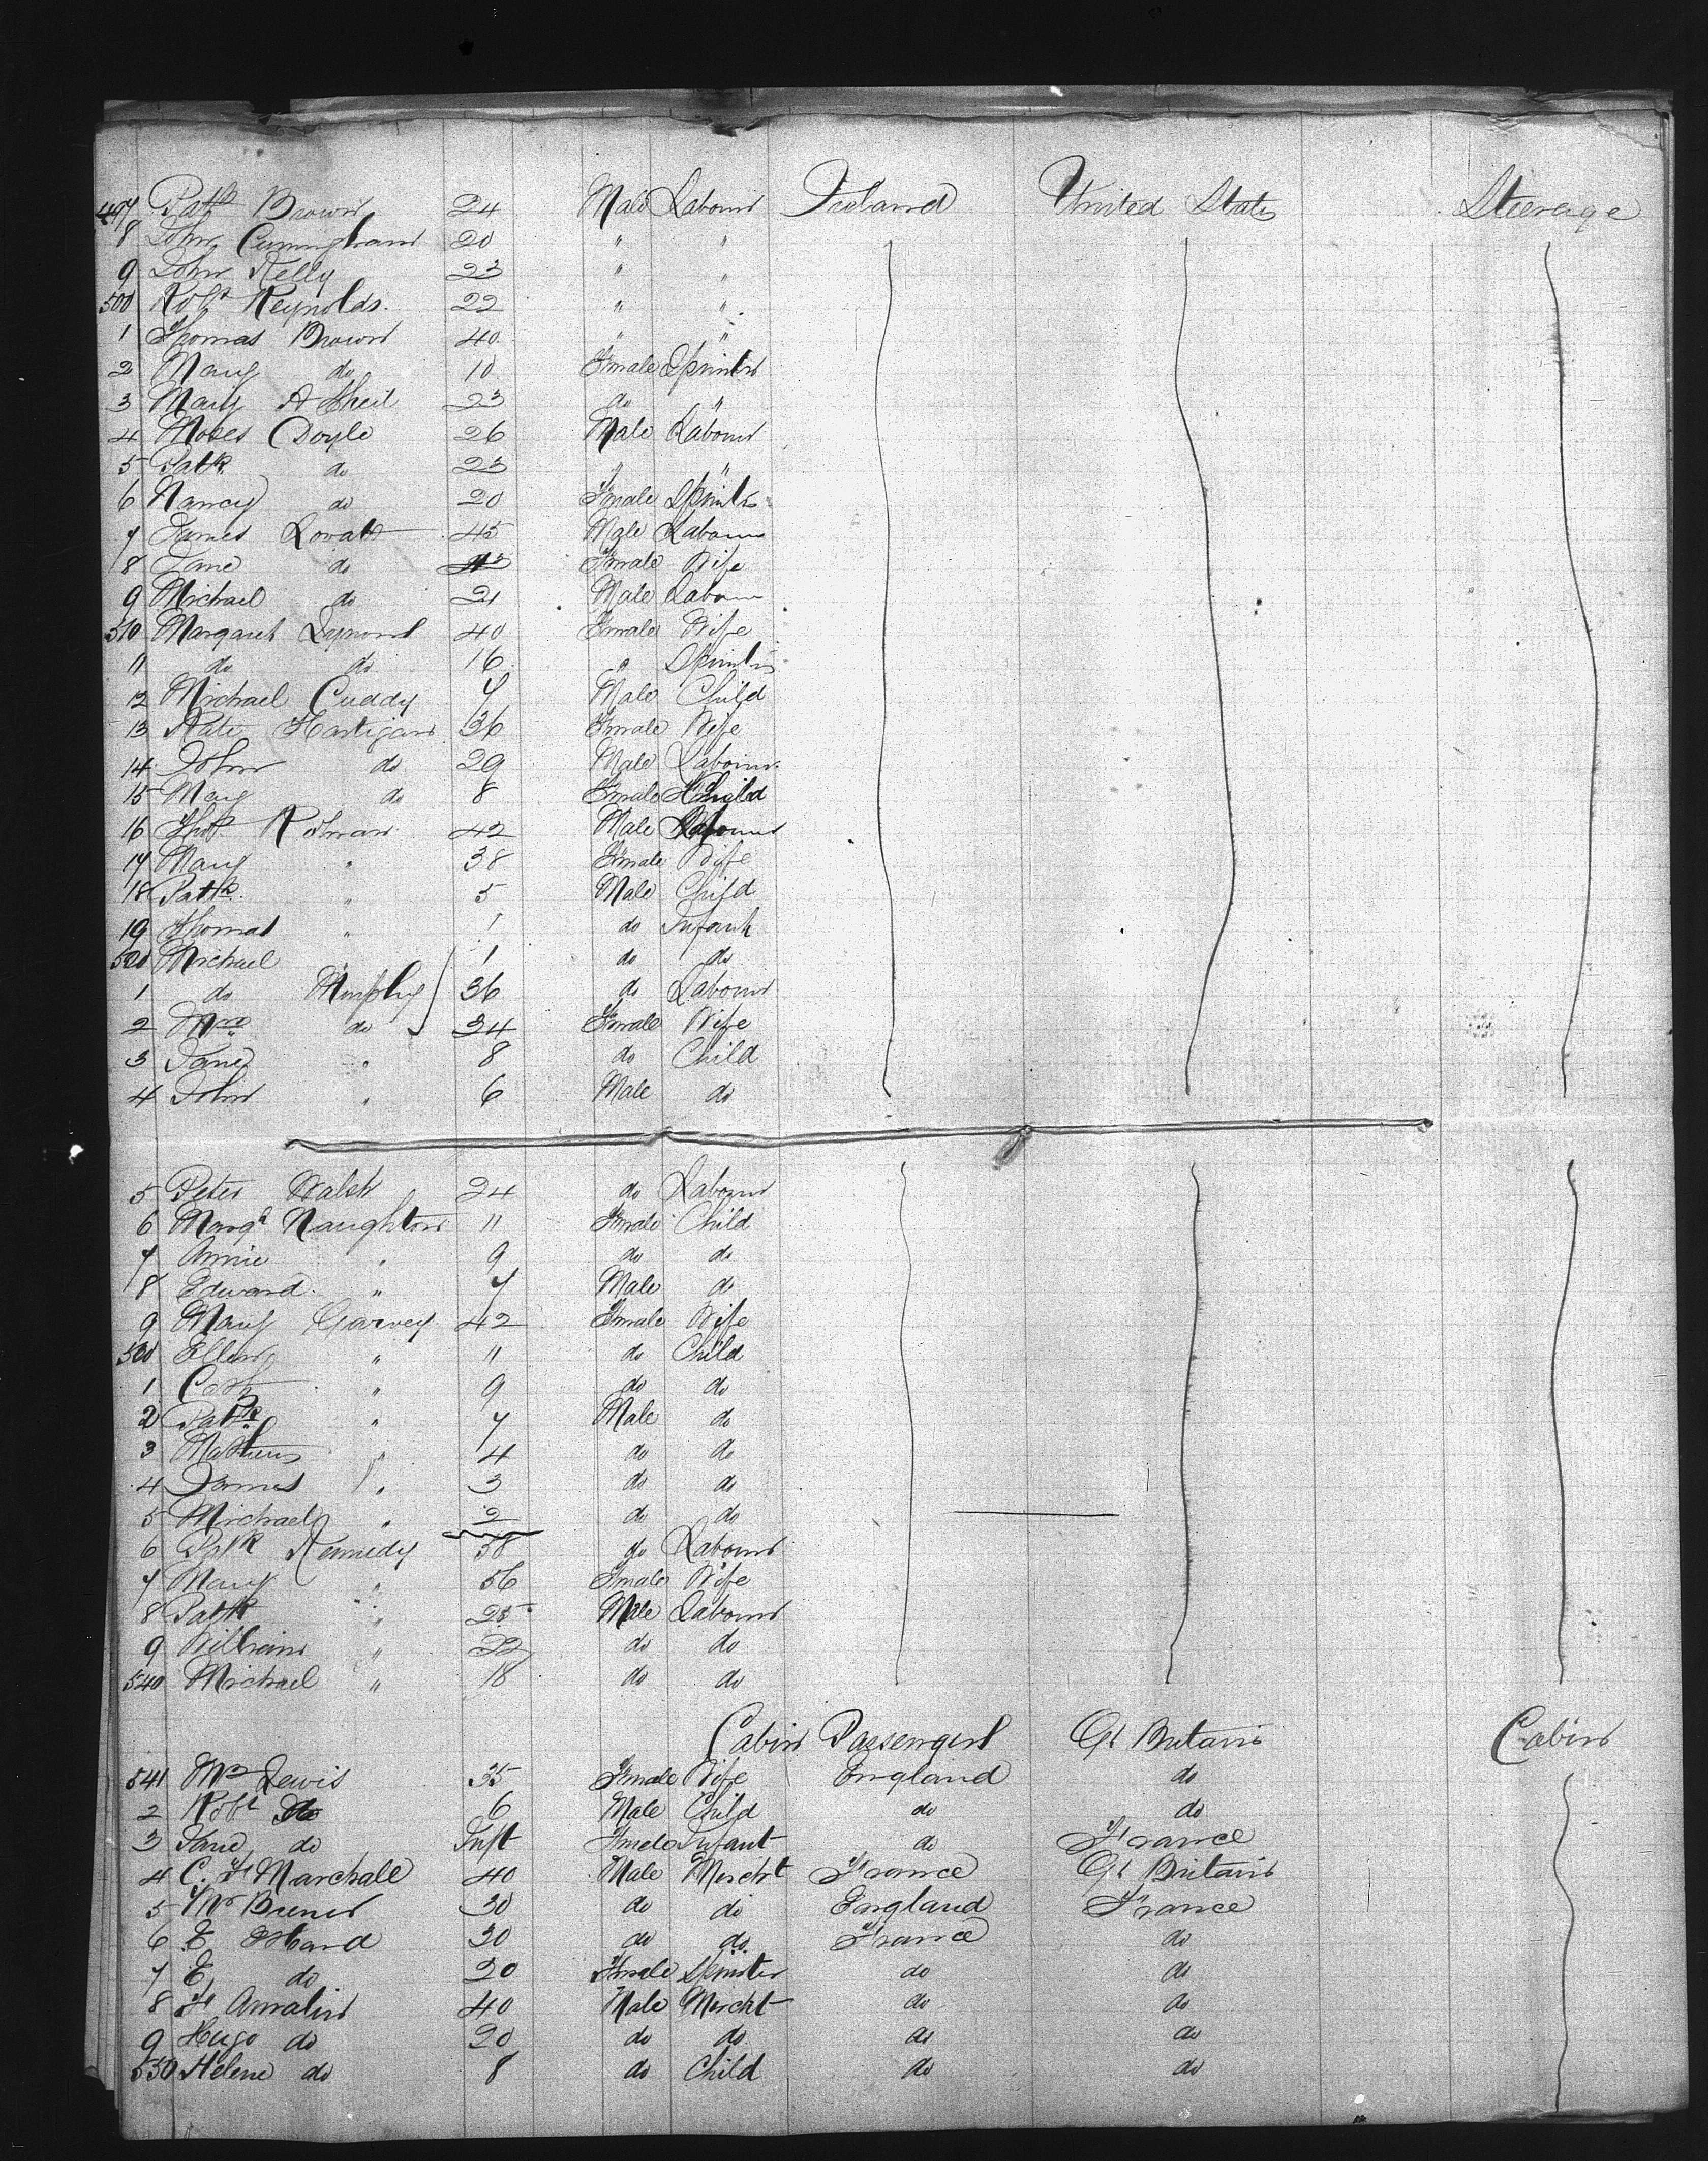 497 Patk Brown 24 Male Labourer Ireland United States Steerage
8 John Cunningham 20 " "
9 John Kelly 23 " "
500 Robt Reynolds. 22 " "
1 Thomas Brown 40 " "
2 Mary do 10 Female Spinster
3 Mary A 23 do "
4 Moses Doyle 26 Male Labourer
5 Patk do 23 " "
6 Nancy do 20 Female Spinster
7 James Lovatt 45 Male Labourer
8 Jane do Female Wife
9 Michael do 21 Male Labourer
510 Margaret 40 Female Wife
11 do do 16 " Spinster
12 Michael Cuddy 7 Male Child
13 Kate Hartigan 36 Female Wife
14 John do 29 Male Labourer
15 Mary do 8 Female Child
16 Thos 42 Male Labourer
17 Mary " 38 Female Wife
18 Patk " 5 Male Child
19 Thomas " 1 do Infant
520 Michael " 1 do do
1 do Murphy 36 do Labourer
2 Mrs do 34 Female Wife
3 Jane " 8 do Child
4 John " 6 Male do
5 Peter Walsh 24 do Labourer
6 Margt Naughton 11 Female Child
7 Annie " 9 do do
8 Edward " 7 Male do
9 Mary Garvey 42 Female Wife
530 Ellen " 11 do Child
1 Cath " 9 do do
2 Patk " 7 Male do
3 Mathew " 4 do do
4 James " 3 do do
5 Michael " 2 do do
6 Patk Kennedy 58 do Labourer
7 Mary " 56 Female Wife
8 Patk " 25 Male Labourer
9 William " 22 do do
540 Michael " 18 do do
Cabin Passengers Gt Britain Cabin
541 Mrs Lewis 35 Female Wife England do
2 Robt Do 6 Male Child do do
3 Jane do Inft Female Infant do France
4 C. F Marchall 40 Male Mercht France Gt Britain
5 Mr 30 do do England France
6 E Hard 30 do do France do
7 E, do 20 Female Spinster do do
8 F Amalin 40 Male Mercht do do
9 Hugo do 20 do do do do
550 Helene do 8 do Child do do